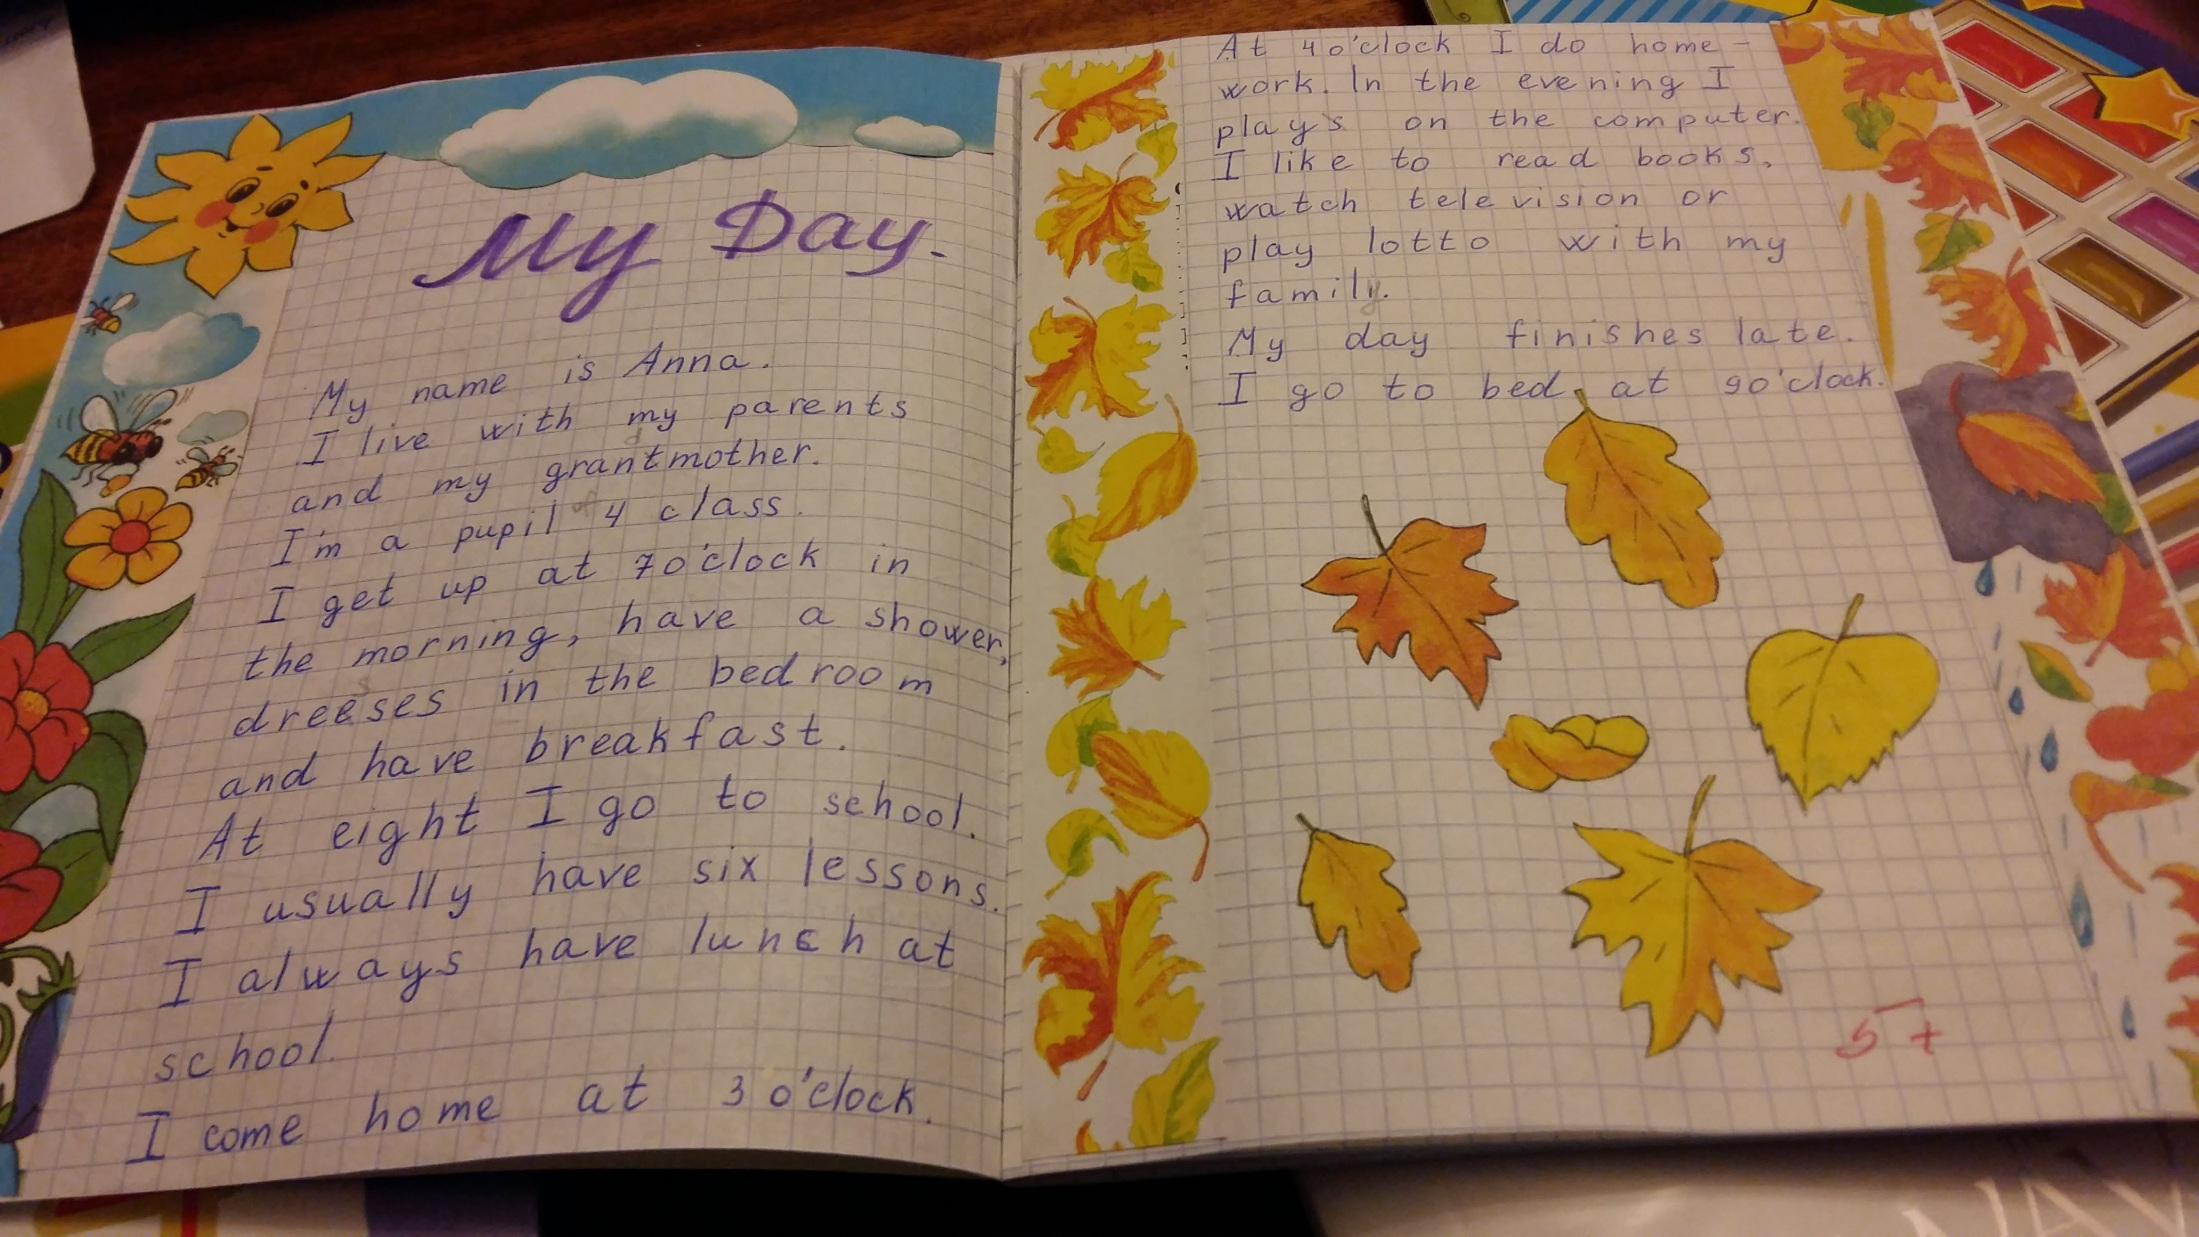 My Day.
My name is Anna.
I live with my parents
and my grantmother.
I'm a pupil of 4 class.
I get up at 7 o'clock in
the morning, have a shower,
dreeses in the bedroom
and have breakfast.
At eight I go to school.
I usually have six lessons.
I always have lunch at
school.
I come home at 3 o'clock.
At 4 o'clock I do home-
work. In the evening I
plays on the computer.
I like to read books,
watch television or
play lotto with my
family.
My day finishes late.
I go to bed at 9 o'clock.
5+